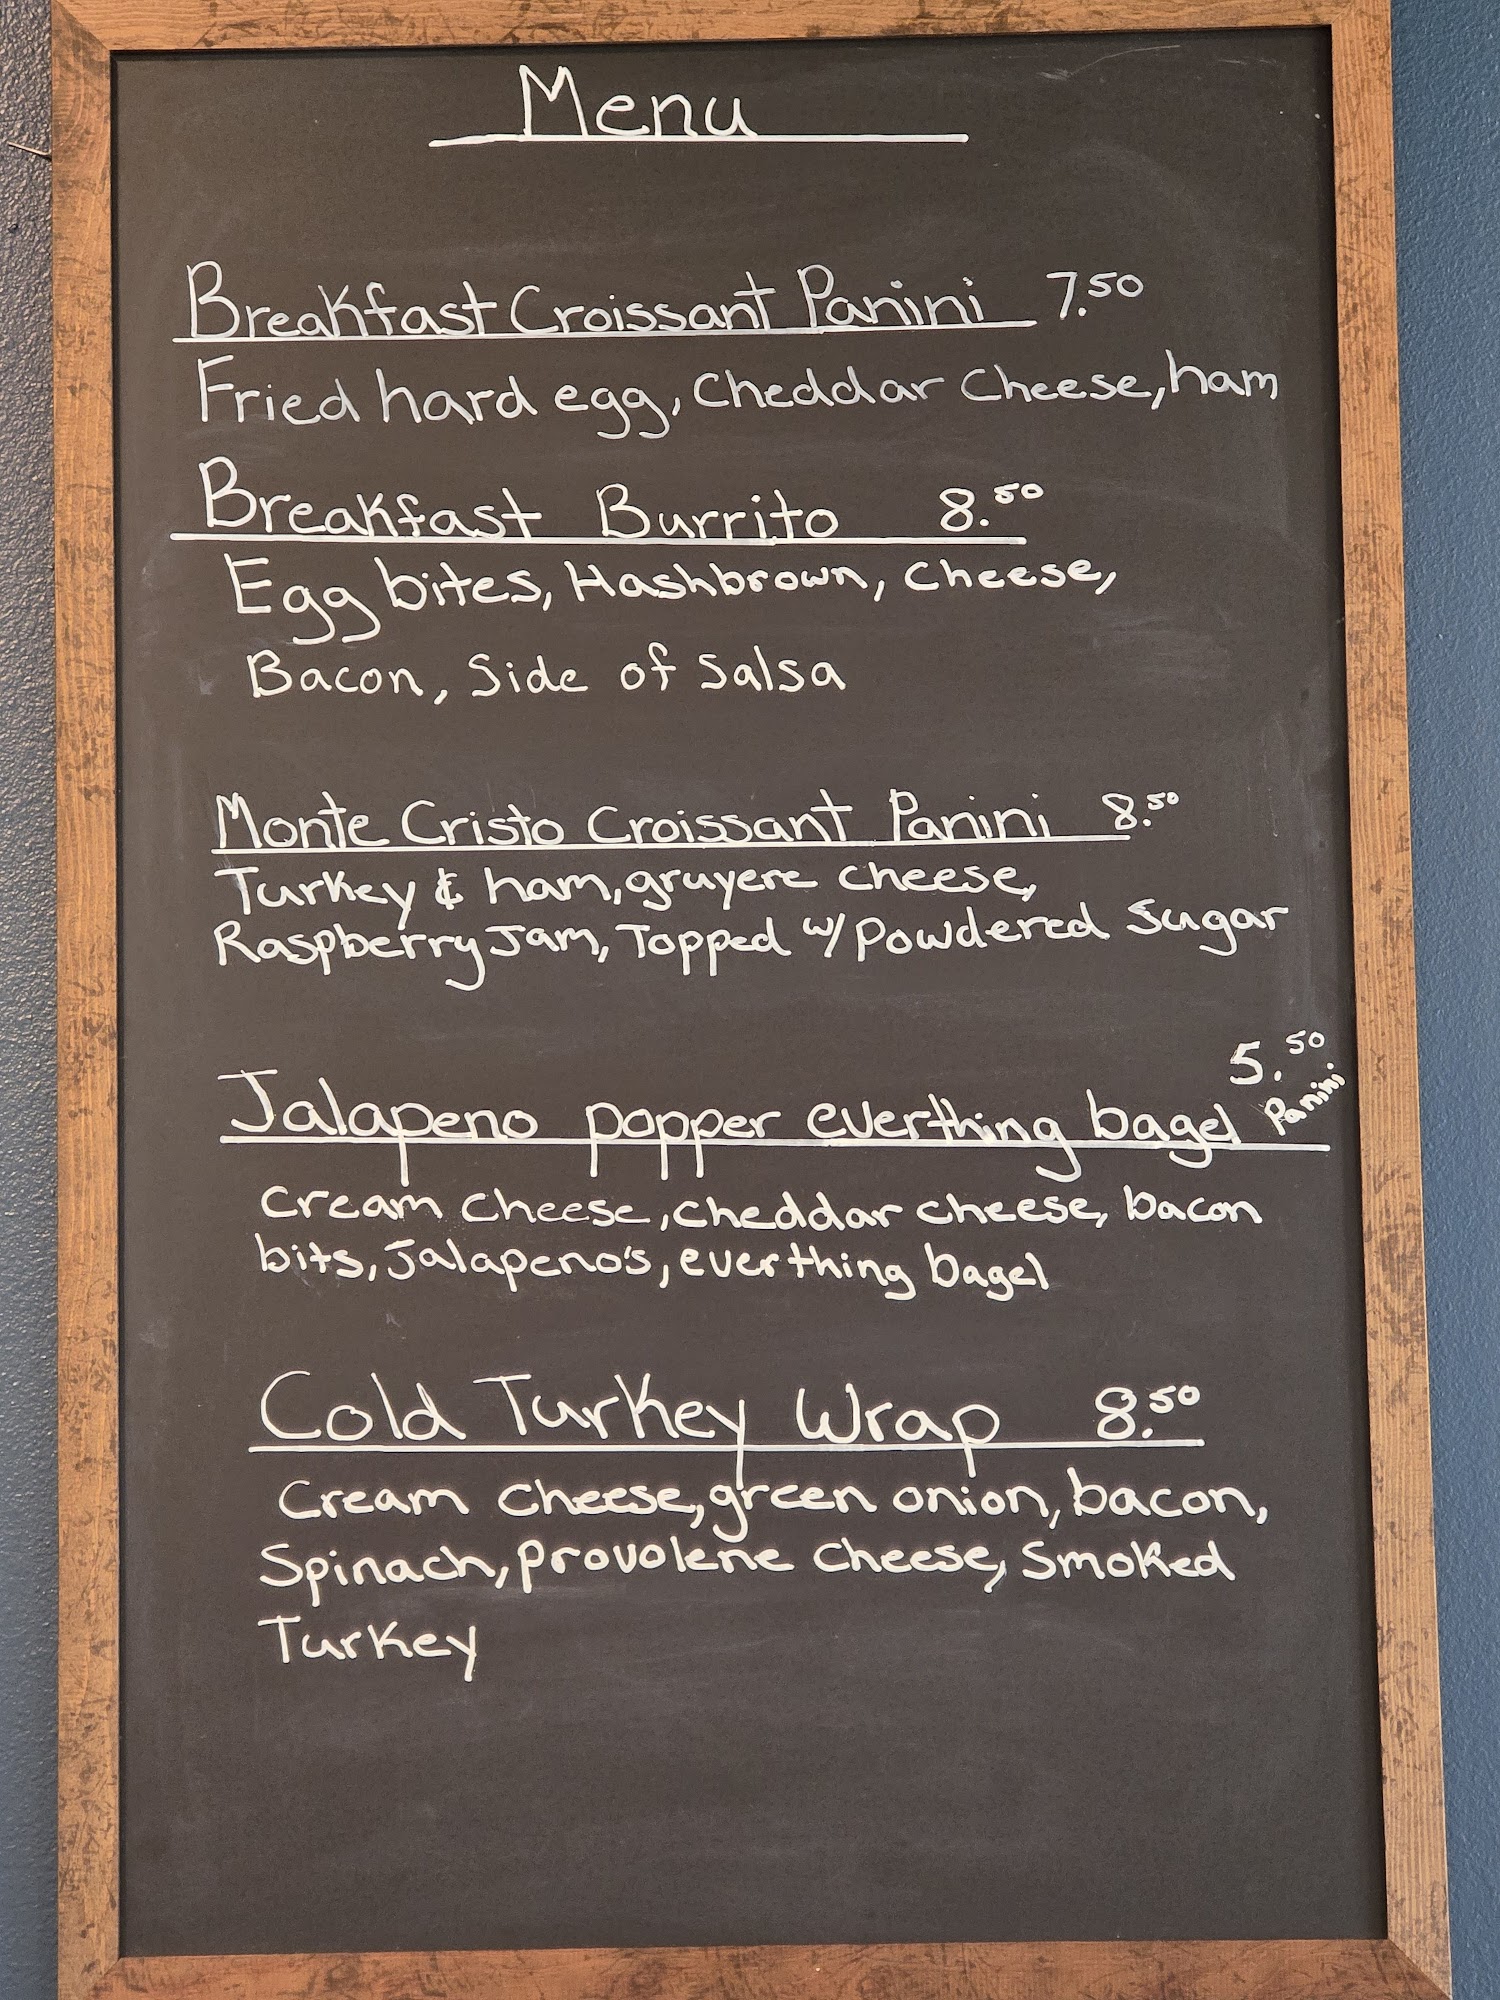 Menu
Breakfast Croissant Panini 7.50
Fried hard egg, Cheddar Cheese, ham
Breakfast Burrito 8.50
Egg bites, Hashbrown, Cheese,
Bacon, Side of Salsa
Monte Cristo Croissant Panini 8.50
Turkey & ham, gruyere cheese,
Raspberry Jam, Topped w/ Powdered Sugar
Jalapeno popper everthing bagel Panini 5.50
Cream Cheese, cheddar cheese, bacon
bits, Jalapeno's, everthing bagel
Cold Turkey Wrap 8.50
Cream Cheese, green onion, bacon,
Spinach, Provolene Cheese, Smoked
Turkey